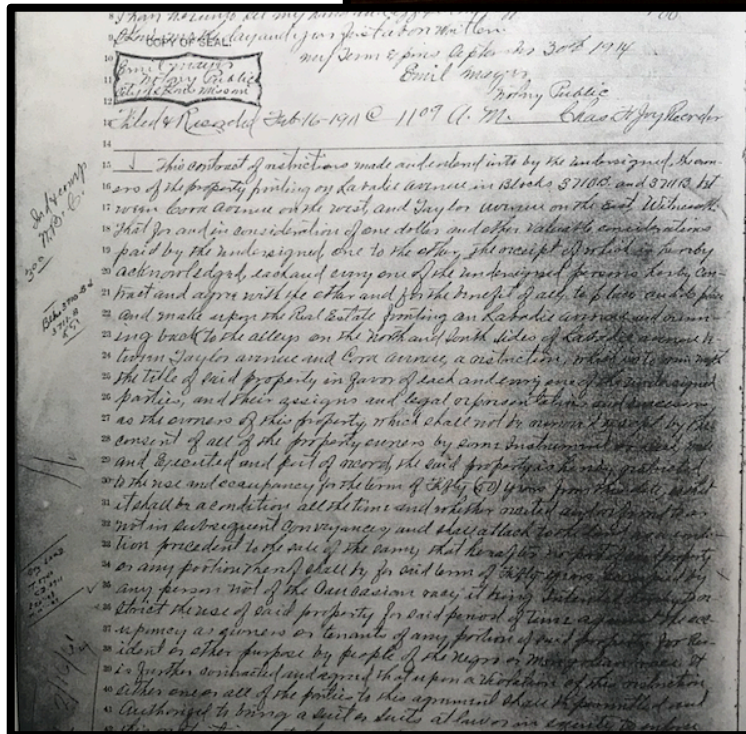 8 I have hereunto set my hand and
9 the day and year first above written.
COPY OF SEAL.
10 my Term Expires September 30th 1914
11 Emil Mayer Emil Mayer
12 Notary Public Notary Public
City of St Louis Missouri
13 Filed & Recorded Feb 16-1911 @ 11 09 A. M. Chas H Joy Recorder
14
15 This contract of restrictions made and entered into by the undersigned, the own-
16 ers of the property fronting on Labadie Avenue in Blocks 3710B. and 3711B. bet
17 ween Cora Avenue on the west, and Taylor avenue on the East. Witnesseth:
18 That for and in consideration of one dollar and other valuable considerations
19 paid by the undersigned one to the other, the receipt of which is hereby
20 acknowledged, each and every one of the undersigned persons hereby con-
21 tract and agree with the other and for the benefit of all, to place and
22 and make upon the Real Estate fronting on Labadie avenue and runn-
23 ing back to the alleys on the North and South sides of Labadie avenue
24 tween Taylor avenue and Cora avenue, a restriction, which is to run with
25 the title of said property in favor of each and every one of the undersigned
26 parties, and their assigns and legal representatives and successors
27 as the owners of this property, which shall not be removed except by the
28 consent of all of the property owners by some Instrument
29 and Executed and put of record, the said property is hereby restricted
30 to the use and occupancy for the term of Fifty (50) years from this date, so that
31 it shall be a condition all the time and whether recited and referred to or
32 not in subsequent conveyances and shall attach to the land as a condi-
33 tion precedent to the sale of the same, that hereafter no part of said property
34 or any portion thereof shall be for said term of Fifty years occupied by
35 any person not of the Caucasian race, it being Intended hereby to re-
36 strict the use of said property for said period of time against the occ-
37 upancy as owners or tenants of any portion of said property for Res-
38 ident or other purpose by people of the Negro or Mongolian race. It
39 is further contracted and agreed that upon a violation of this restriction
40 either one or all of the parties to this agreement shall be permitted and
41 Authorized to bring a suit or suits at law or in equity to enforce